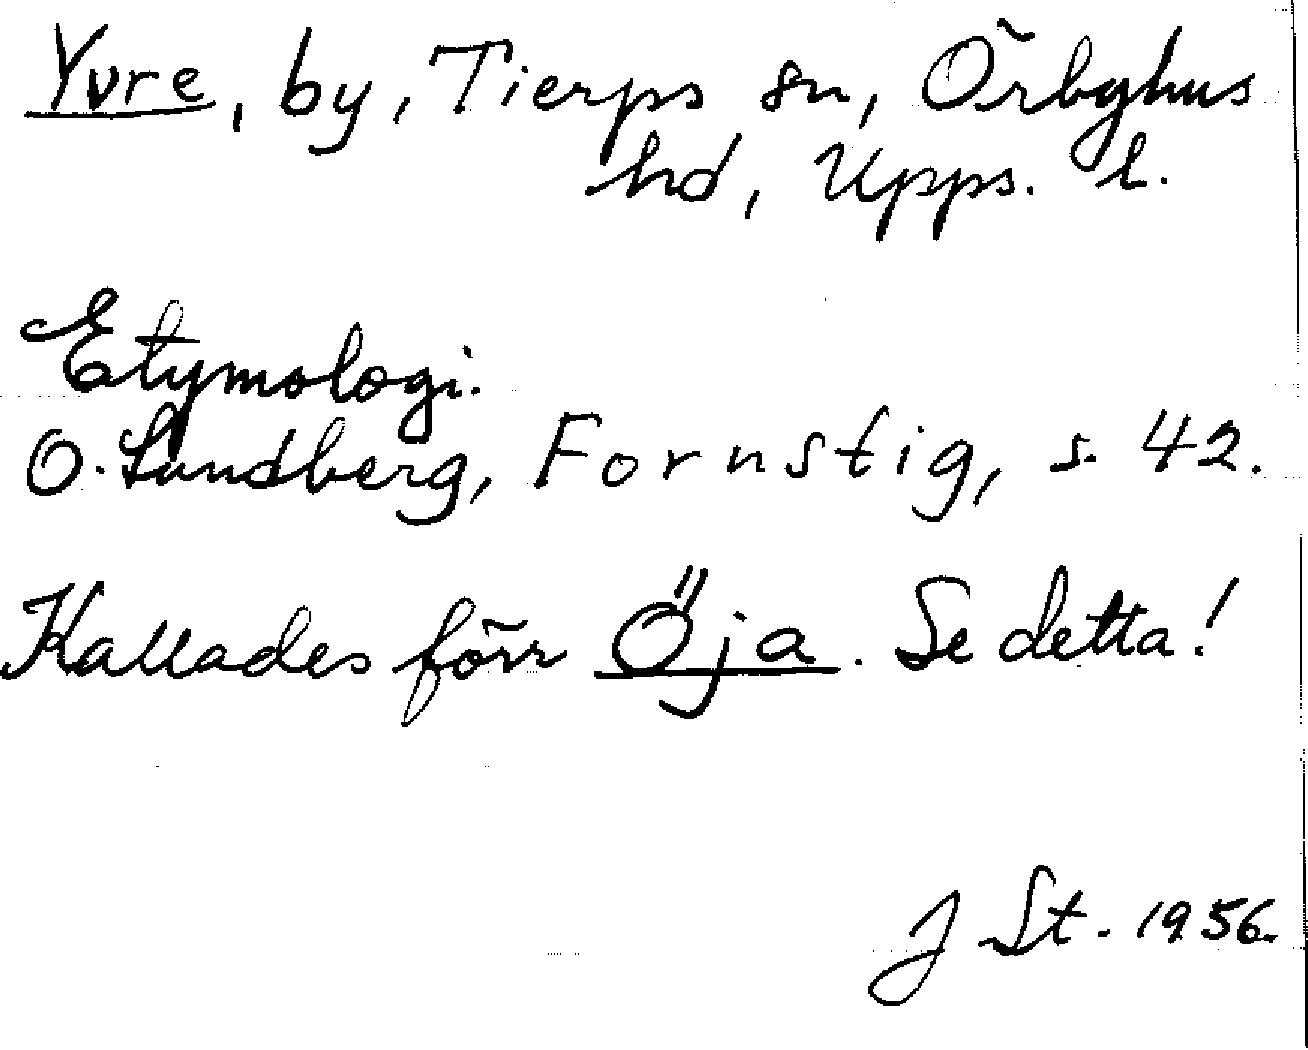 Yvre, by, Tierps sn, Örbyhus
hd, Upps. l.
Etymologi.
O. Lundberg, Fornstig, s. 42.
Kallades förr Öja. Se detta!
J St. 1956.